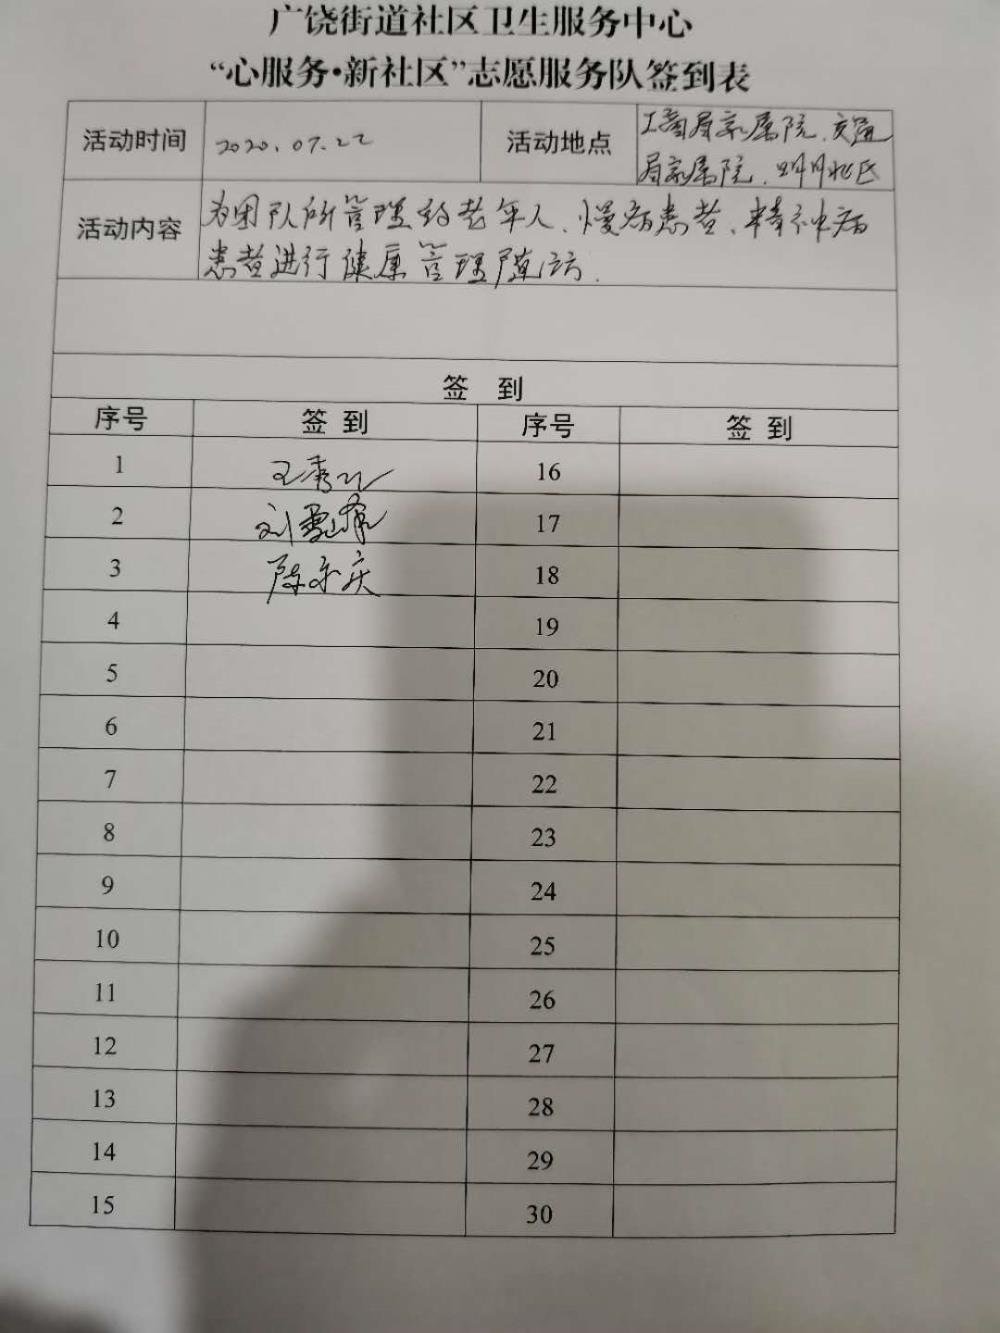 广饶街道社区卫生服务中心
“心服务·新社区”志愿服务队签到表
活动时间 2020.07.22 活动地点 工商局家属院、交通
局家属院、明月北区
活动内容 为团队所管理的老年人、慢病患者、精神病
患者进行健康管理随访.
签 到
序号 签 到 序号 签 到
1 王秀 16
2 刘 17
3 陈永庆 18
4 19
5 20
6 21
7 22
8 23
9 24
10 25
11 26
12 27
13 28
14 29
15 30